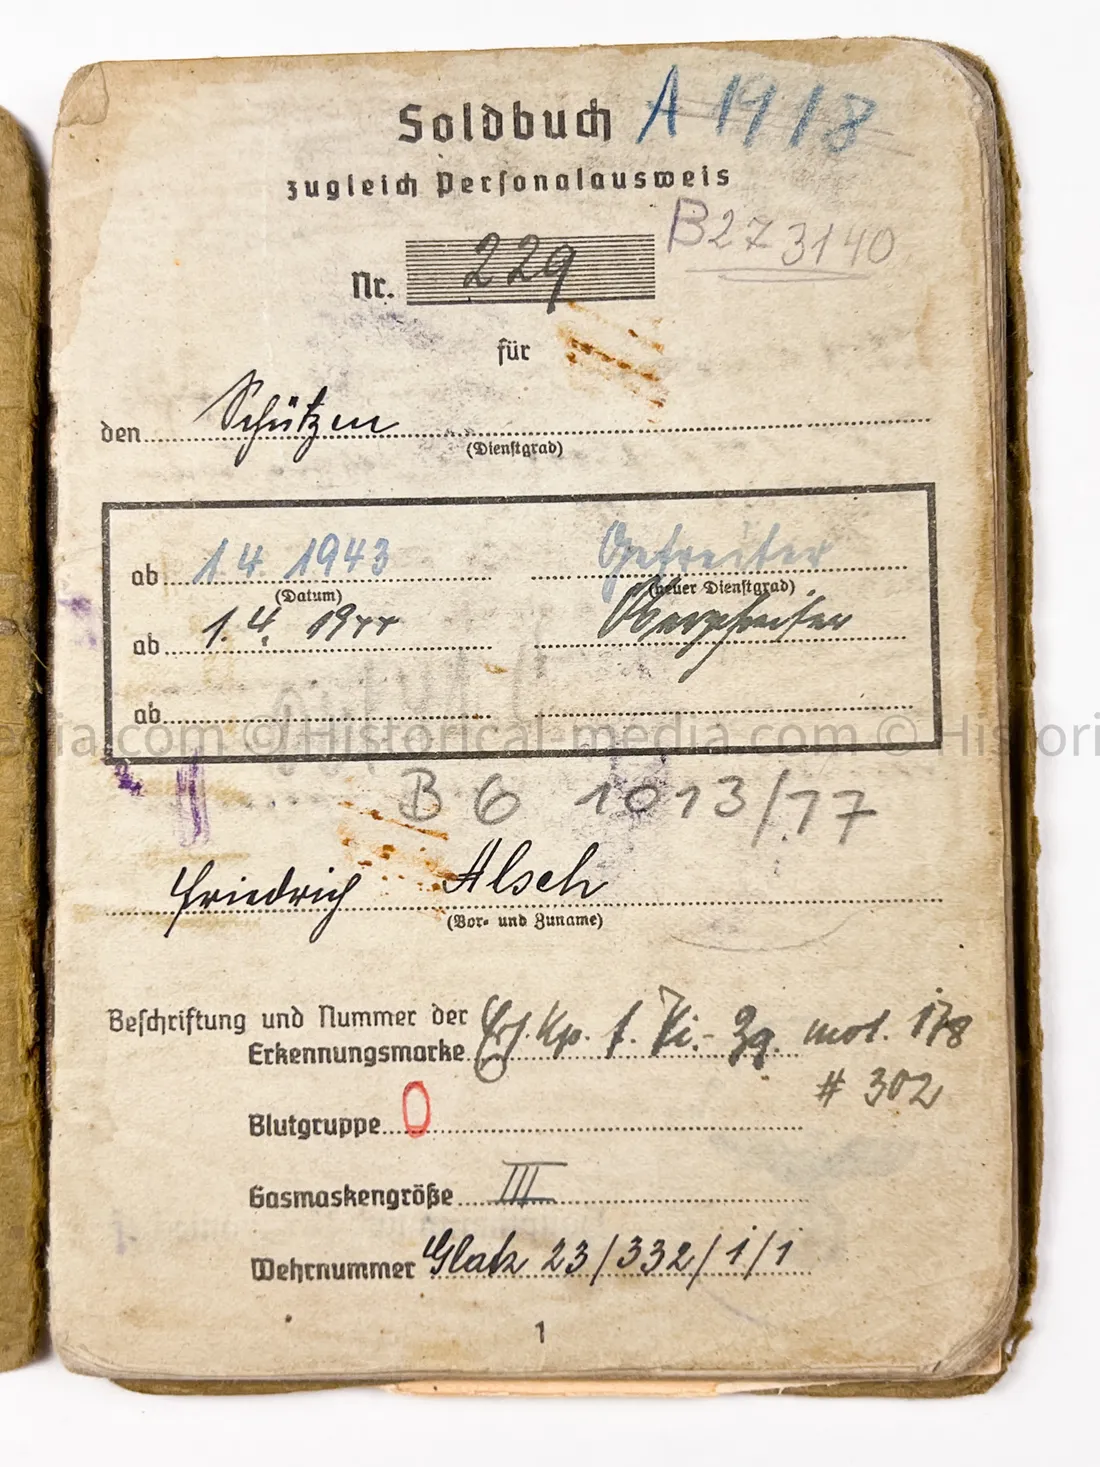 Soldbuch A 1918
zugleich Personalausweis
B273140
Nr. 229
für
den Schützen
(Dienstgrad)
ab 1.4. 1943 Gefreiter
(Datum) (neuer Dienstgrad)
ab 1.4. 1944 Obergefreiter
ab
© Historical-media.com ©
B 6 1013/77
Friedrich Alsch
(Vor- und Zuname)
Beschriftung und Nummer der
Erkennungsmarke Ers. Kp. f. Pi.- Zg. mot. 178
# 302
Blutgruppe O
Gasmaskengröße III
Wehrnummer Glatz 23/332/1/1
1